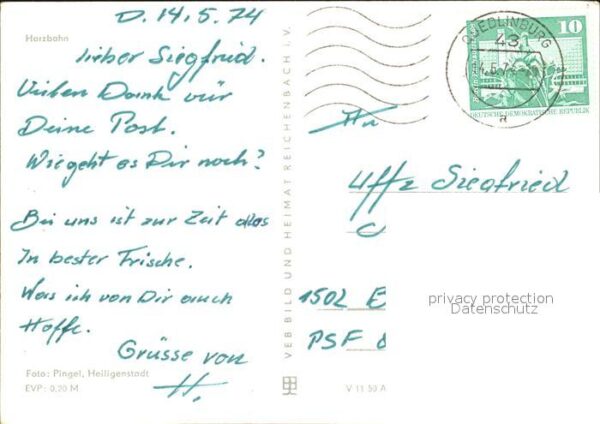 Harzbahn
D. 14.5.74
lieber Siegfried.
Vielen Dank vür
Deine Post.
Wie geht es Dir noch?
Bei uns ist zur Zeit alles
In bester Frische.
Was ich von Dir auch
Hoffe.
Grüsse von
H.
Foto: Pingel, Heiligenstadt
EVP: 0,20 M
VEB BILD UND HEIMAT REICHENBACH i. V.
V 11 50 A
QUEDLINBURG
43
a
10
DEUTSCHE DEMOKRATISCHE REPUBLIK
An
Uffz Siegfried
1502 E
PSF
privacy protection
Datenschutz